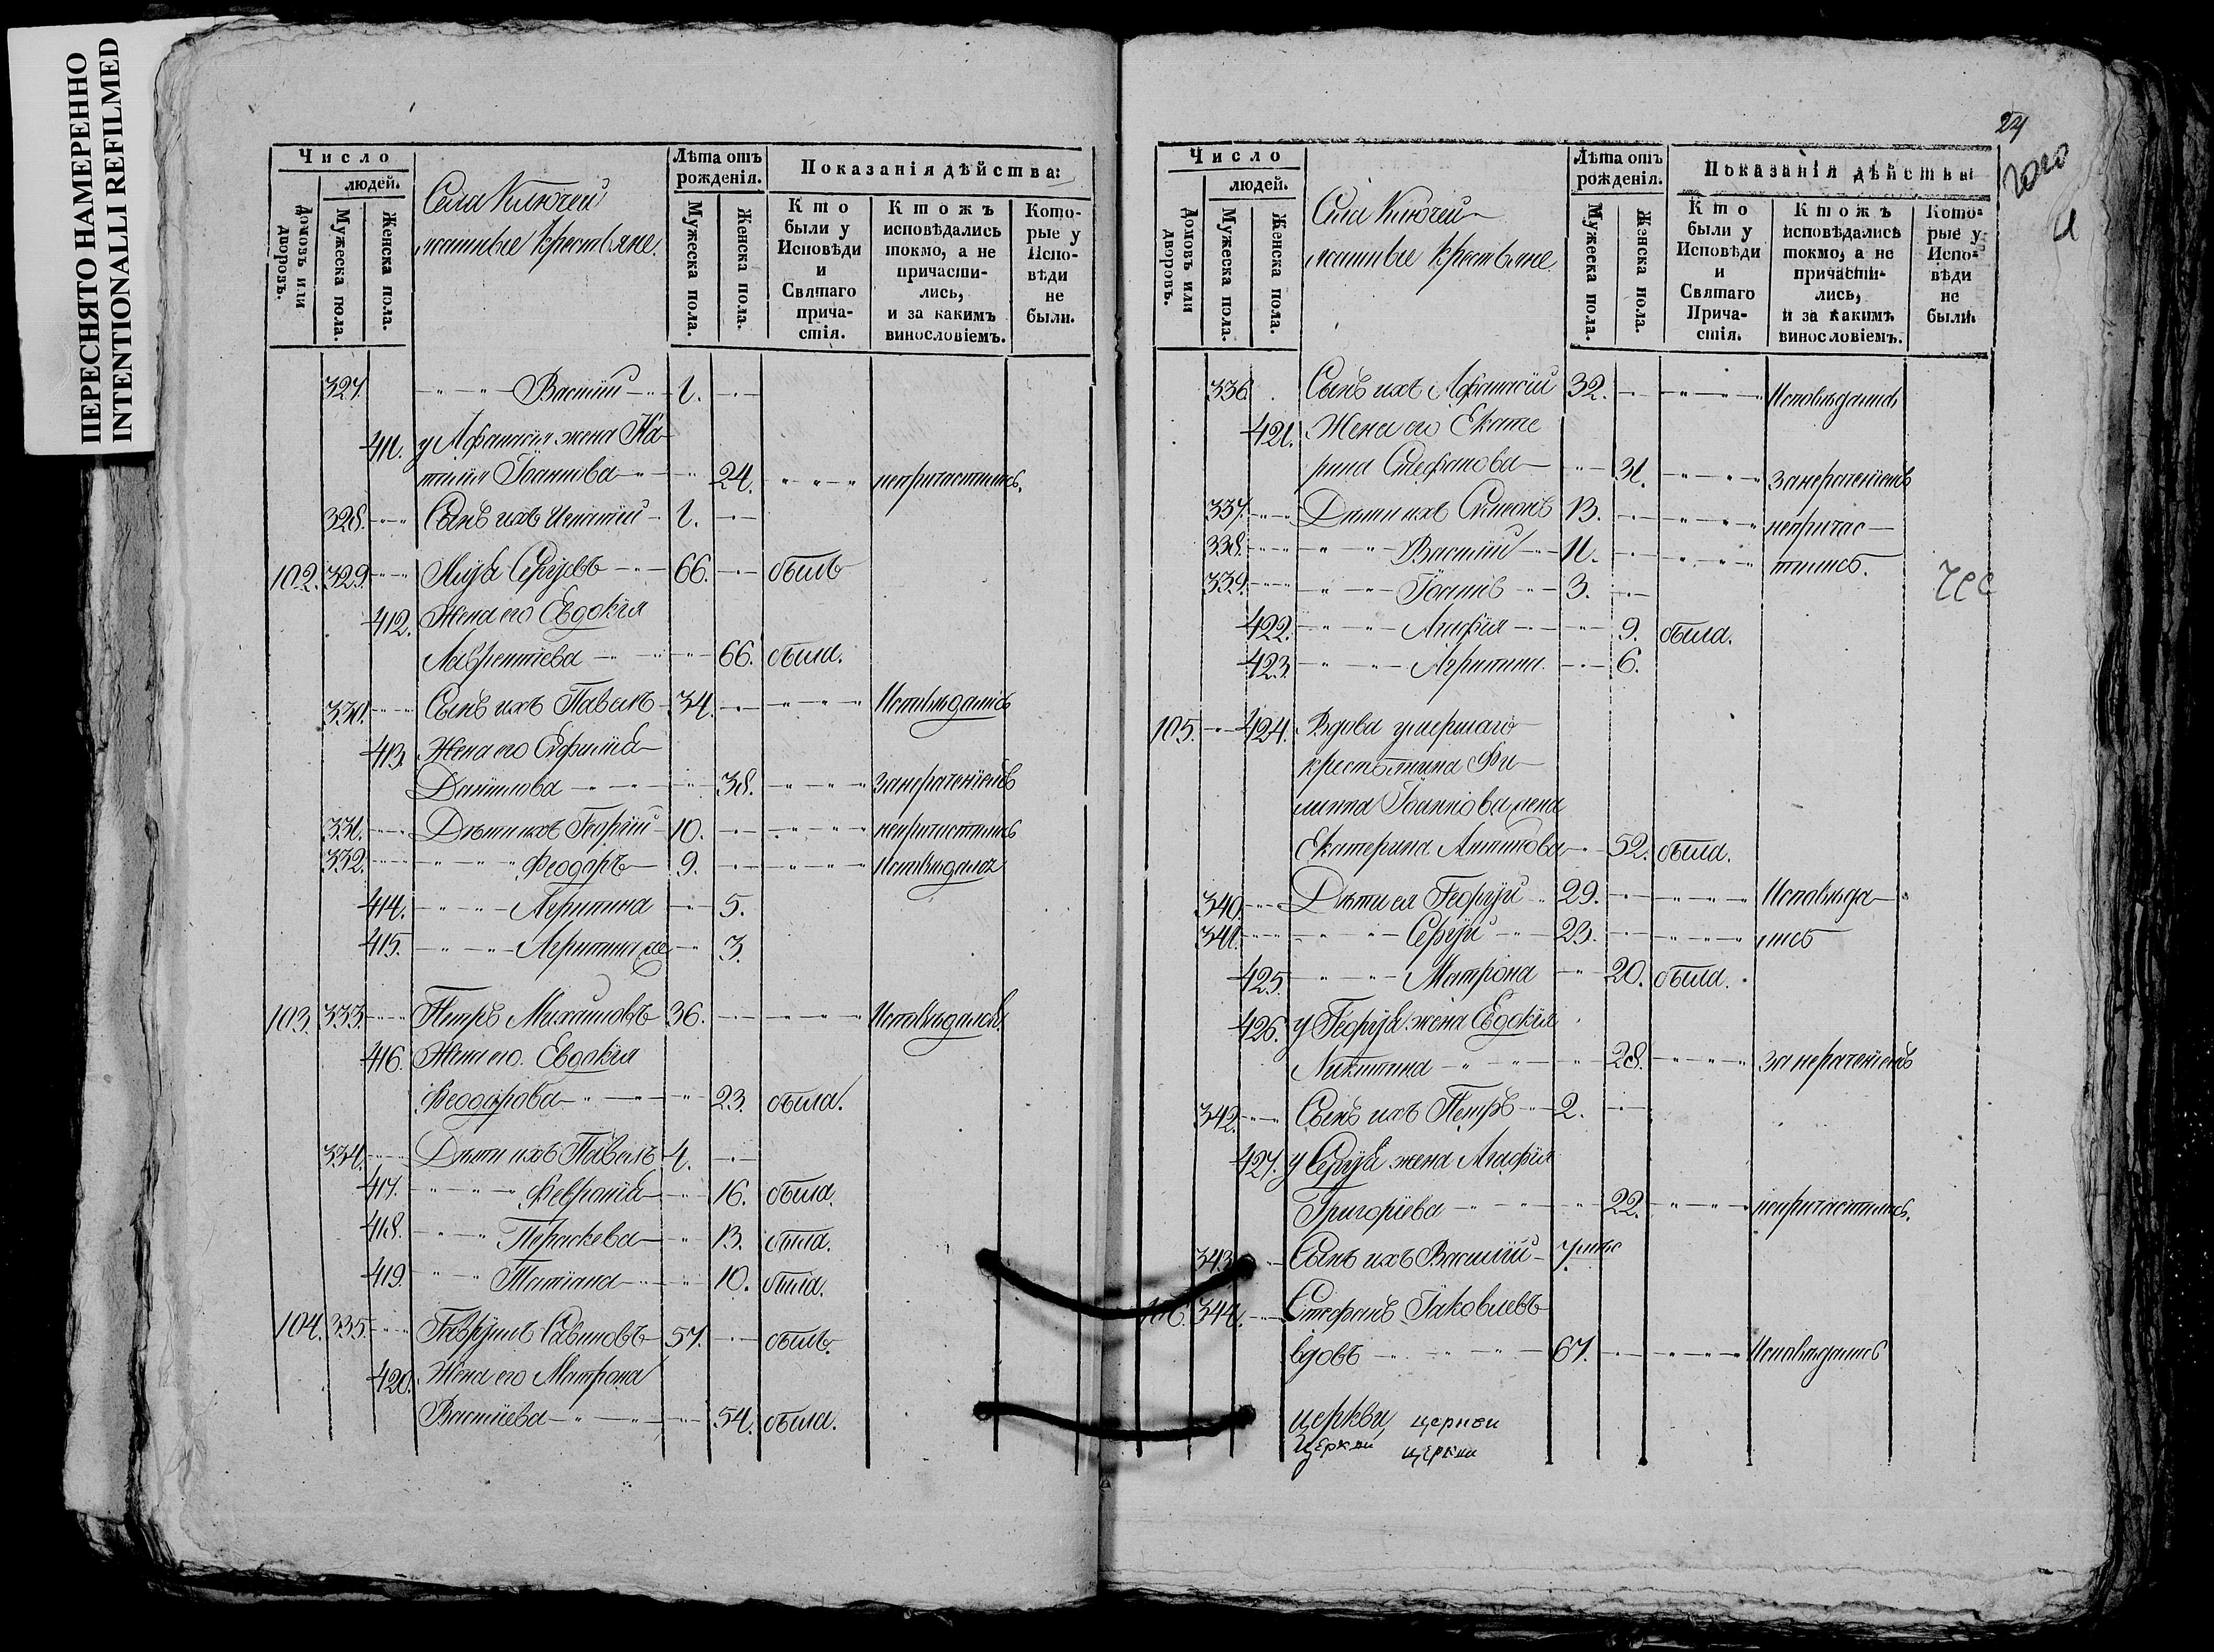 ПЕРЕСНЯТО НАМЕРЕННО
INTENTIONALLI REFILMED
Число
людей.
Домовъ или дворовъ.
Мужеска пола.
Женска пола.
Села Ключей
крестьяне.
Лѣта отъ рожденія.
Мужеска пола.
Женска пола.
Показанія дѣйства:
Кто были у Исповѣди и Святаго причастія.
Ктожъ исповѣдались токмо, а не причастились, и за какимъ винословіемъ.
Которые у Исповѣди не были.
327. Василій 1.
411. у Афанасія жена На-
талія Іоаннова 24. непричастились.
328. Сынъ ихъ Игнатій 1.
102. 329. Сергѣевъ 66. былъ
412. Жена его Евдокія
Лаврентіева 66. была.
330. Сынъ ихъ Павелъ 34. Исповѣдались
413. Жена его Евфимія
Даніилова 38. занераченіемъ
331. Дѣти ихъ Георгій 10. непричастились
332. Феодоръ 9. исповѣдался
414. Агрипина 5.
415. Агрипина же 3.
103. 333. Петръ Михаиловъ 36. Исповѣдался.
416. Жена его Евдокія
Феодорова 23. была.
334. Дѣти ихъ Павелъ 4.
417. Февронія 16. была.
418. Параскева 13. была.
419. Татіана 10. была.
104. 335. Гавріилъ Савиновъ 57. былъ.
420. Жена его Матрона
Василіева 54. была.
24
Число
людей.
Домовъ или дворовъ.
Мужеска пола.
Женска пола.
Села Ключей
крестьяне.
Лѣта отъ рожденія.
Мужеска пола.
Женска пола.
Показанія дѣйства
Кто были у Исповѣди и Святаго Причастія.
Ктожъ исповѣдались токмо, а не причастились, и за какимъ винословіемъ.
Которые у Исповѣди не были.
336. Сынъ ихъ Афанасій 32. Исповѣдались
421. Жена его Екате
рина Стефанова 31. занераченіемъ
337. Дѣти ихъ Симеонъ 13. непричас-
338. Василій 11. тились.
339. Іоаннъ 3.
422. Агафія 9. была.
423. Агрипина 6.
105. 424. Вдова умершаго
крестьянина Фи-
липа Іоаннова жена
Екатерина Антипова 52. была.
340. Дѣти ея Георгій 29. Исповѣда-
341. Сергѣй 23. лись
425. Матрона 20. была.
426. у Георгія жена Евдокія
Никитина 28. за нераченіемъ
342. Сынъ ихъ Петръ 2.
427. у Сергѣя жена Агафія
Григоріева 22. непричастились.
343. Сынъ ихъ Василій
106. 344. Стефанъ Іаковлевъ
вдовъ 67. Исповѣдались
церкви церкви
Церкви церкви